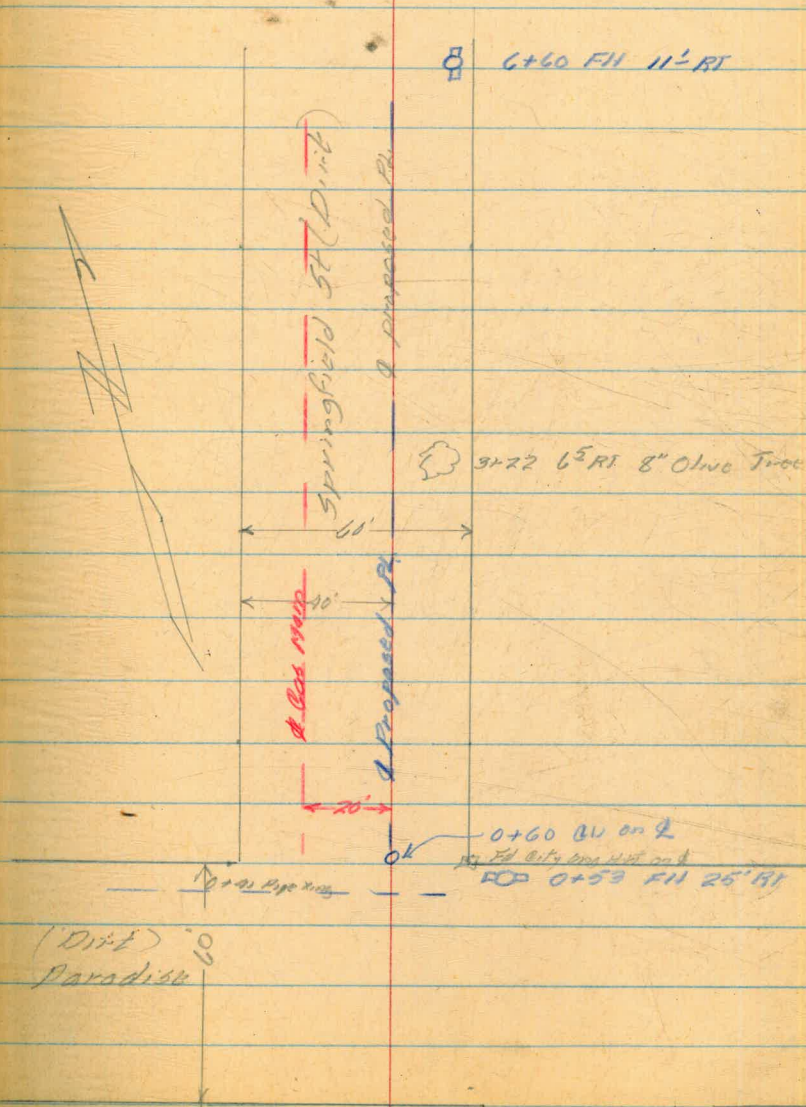 6+60 FH 11' RT
Springfield St (Dirt)
℄ proposed PL
3+22 6⁵ RT 8" Olive Tree
60'
40'
℄ Gas Main
℄ Proposed PL
20'
0+60 GV on ℄
Fd City on ℄
0+53 FH 25' RT
Pipe Xing
(Dirt)
Paradise
60